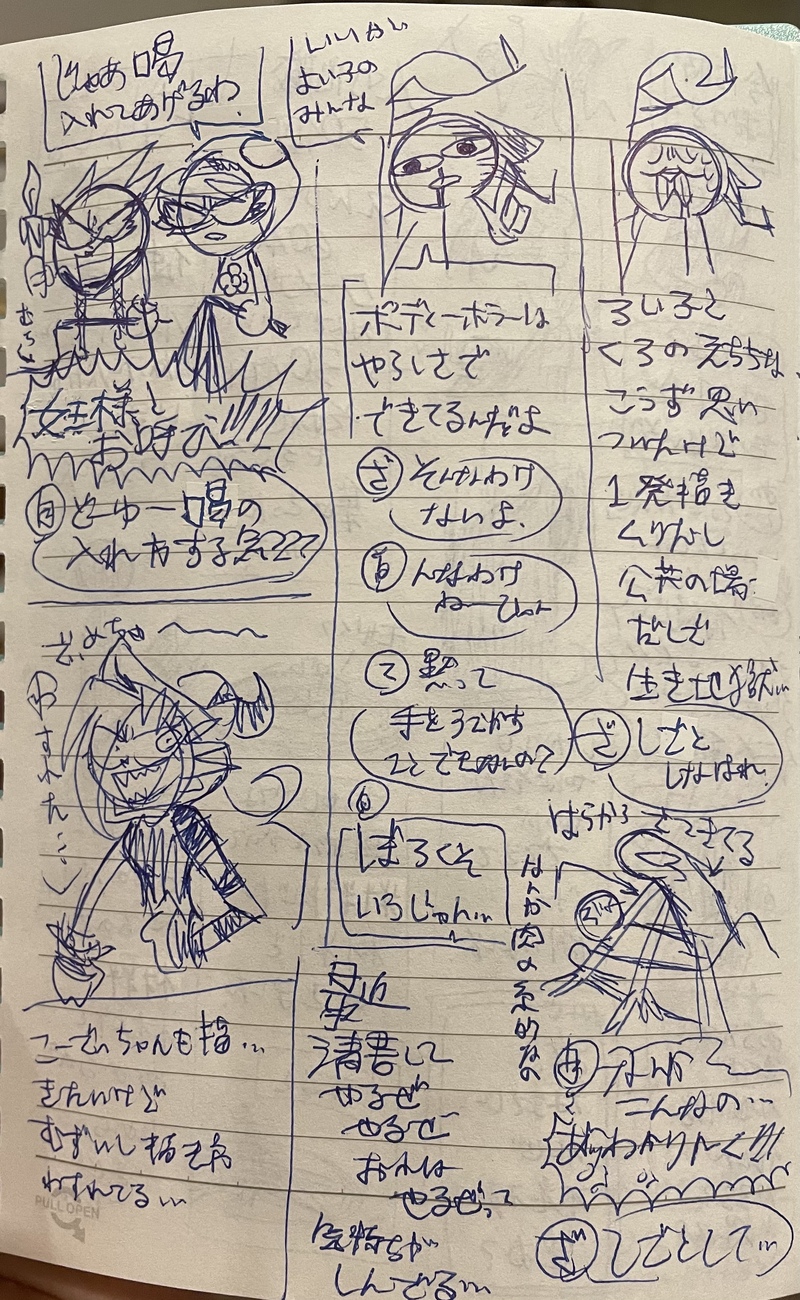 じゃあ喝
入れてあげるわ
むちっ
女王様と
お呼び!!!!!
月
とゆー喝の
入れ方する気???
わすれた…
こーせいちゃんも描…
きたいけど
むずいし描き方
わすれてる…
PULL OPEN
いいかい
よい子の
みんな
ボディーボラーは
やらしさで
できてるんだよ
ざ
そんなわけ
ないよ。
んなわけ
ねーでしょ
ろ
黙って
手をうごかす
ことできないの?
ぼろくそ
いうじゃん…
清書して
やるぜ
やるぜ
おれは
やるぜって
気持ちが
しんでる…
ろい子と
くろのえちちな
こうず思い
ついたけど
1発描き
ムリだし
公共の場
だしで
生き地獄…
ざ
しごと
しなはれ。
はらから
でてきてる
なんか肉の糸的なの
なんか
こんなの…
めっちゃわかりにくい!!
ざ
しごとして…